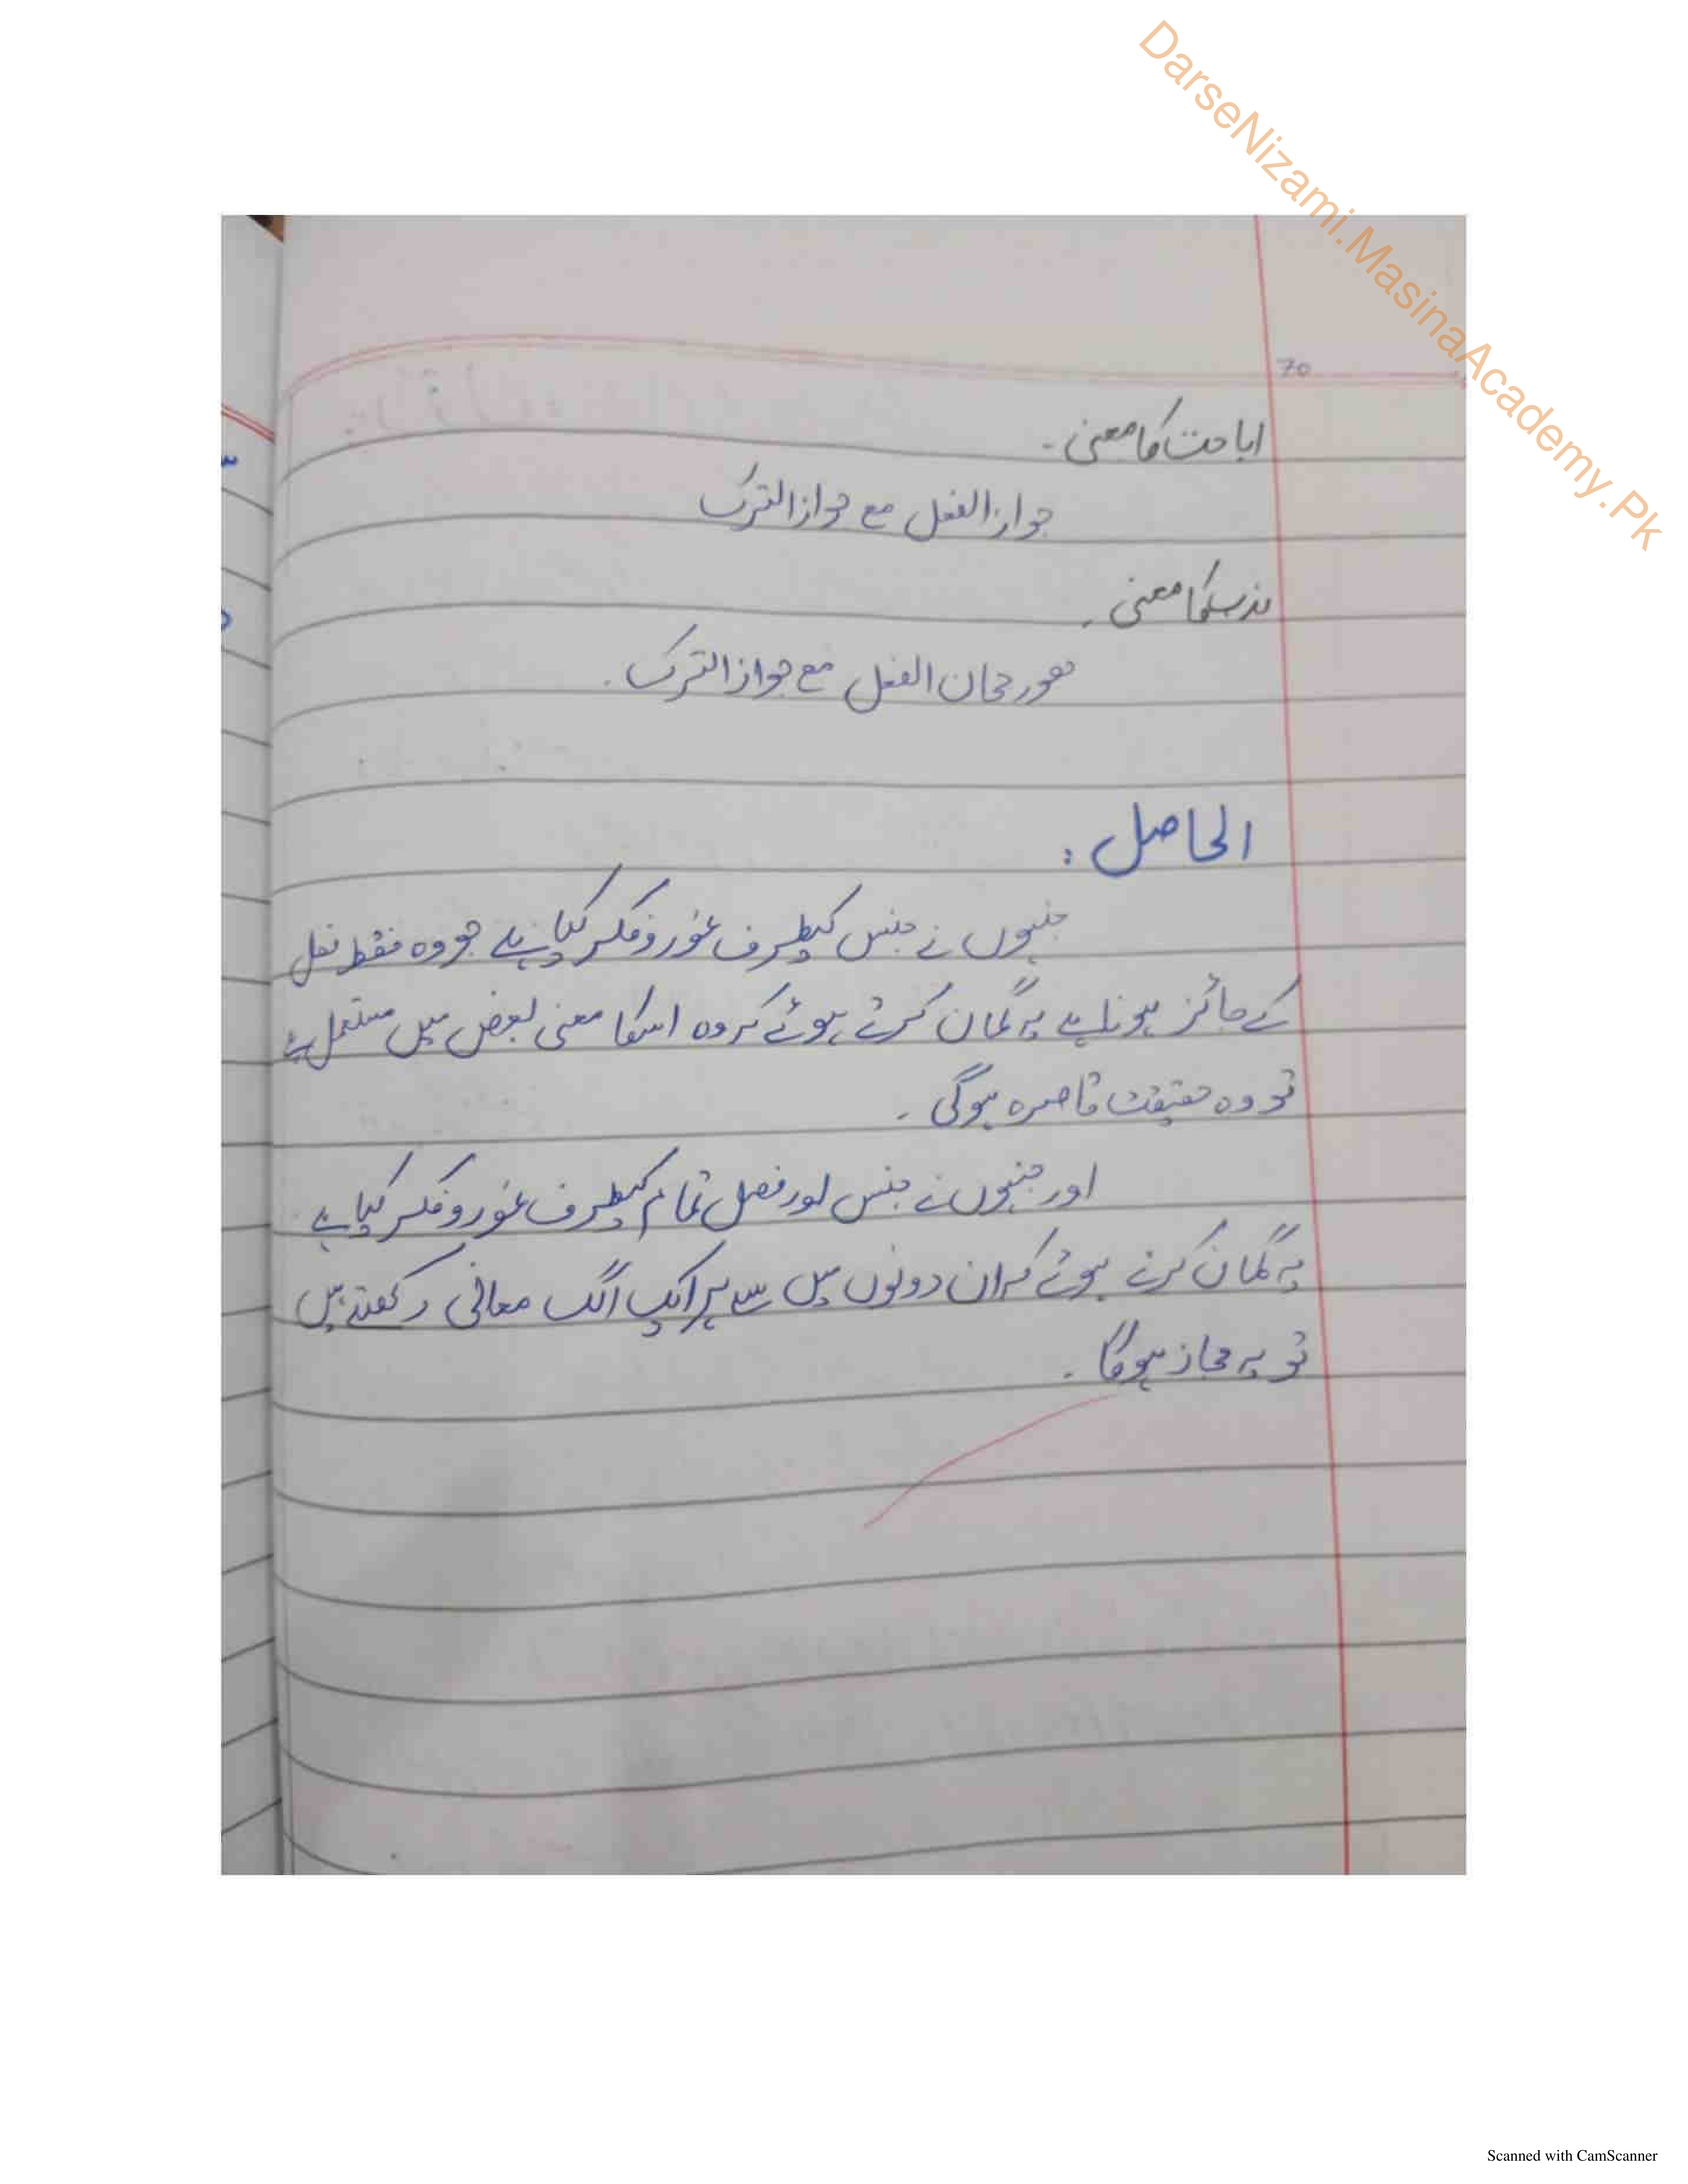 DarseNizami.MasinaAcademy.Pk
70
اباحت کا معنی -
جواز الفعل مع جواز الترک
ندب کا معنی .
ھو رجحان الفعل مع جواز الترک .
الحاصل :
جنہوں نے جنس کیطرف غور و فکر کیا ہے جو وہ فقط فعل
کے جائز ہونا ہے یہ گمان کرتے ہوئے کہ وہ اسکا معنی بعض میں مستعمل ہے
تو وہ حقیقت قاصرہ ہوگی .
اور جنہوں نے جنس اور فصل تمام کیطرف غور و فکر کیا ہے
یہ گمان کرتے ہوئے کہ ان دونوں میں سے ہر ایک الگ معانی رکھتے ہیں
تو یہ مجاز ہوگا .
Scanned with CamScanner